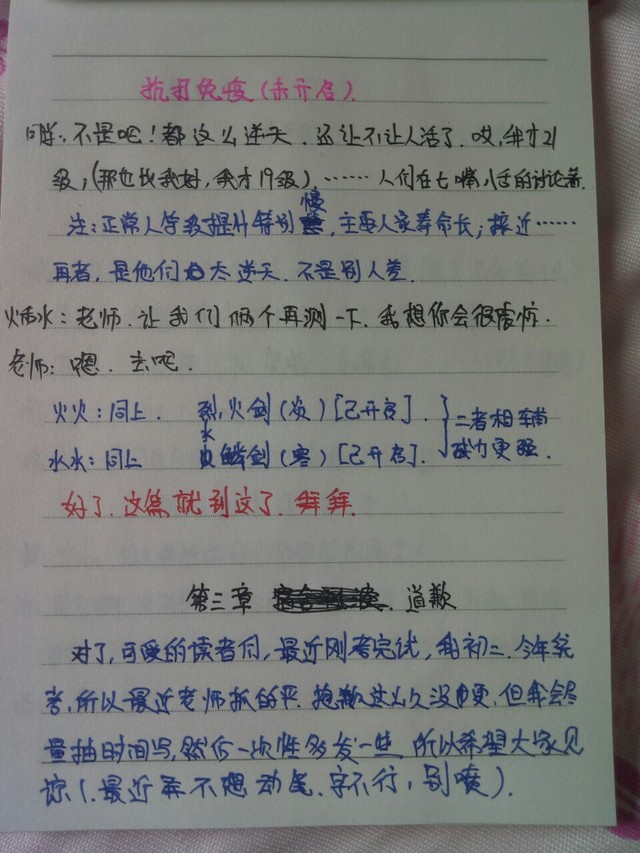 抗打免疫(未开启).
同学:不是吧!都这么逆天.还让不让人活了.哎,我才21
级,(那也比我好,我才19级)……人们在七嘴八舌的讨论着.
慢
注:正常人等级提升特别,主要人家寿命长;接近……
再者,是他们太逆天.不是别人差.
火焰水:老师.让我们俩个再测一下.我想你会很震惊.
老师:嗯.去吧.
火火:同上. 烈火剑(炎)[已开启].
二者相辅
水
水水:同上 鳞剑(寒)[已开启].
威力更强.
好了.这篇就到这了.拜拜.
第三章 .道歉
对了,可爱的读者们,最近刚考完试,我初二.今年统
考,所以最近老师抓的严.抱歉这么久没更.但我会尽
量抽时间写,然后一次性多发一些.所以希望大家见
谅(.最近弄不想动笔.字不行,别喷).